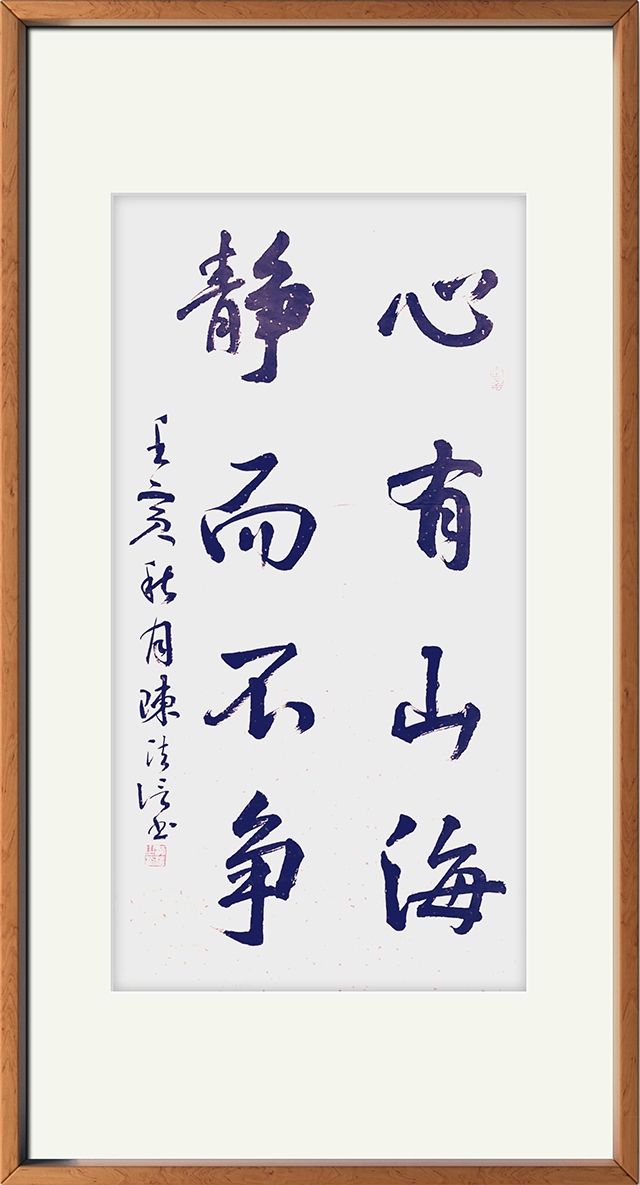 心有山海
静而不争
壬寅秋月陳法信书